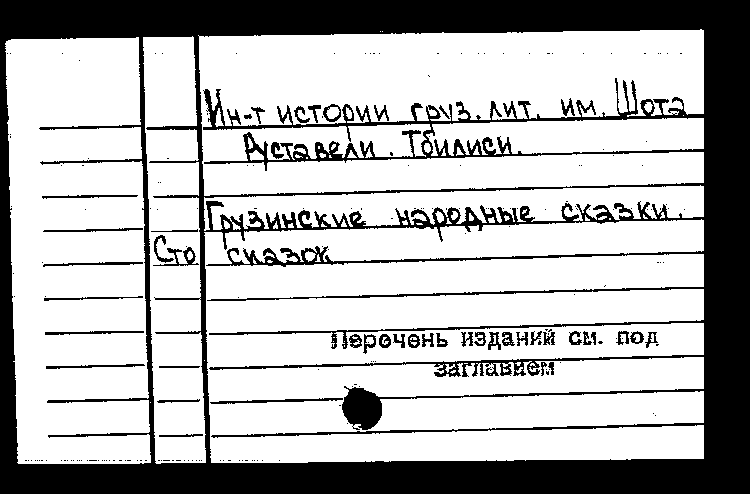 Ин-т истории груз. лит. им. Шота
Руставели. Тбилиси.
Грузинские народные сказки.
Сто сказок
Перечень изданий см. под
заглавием